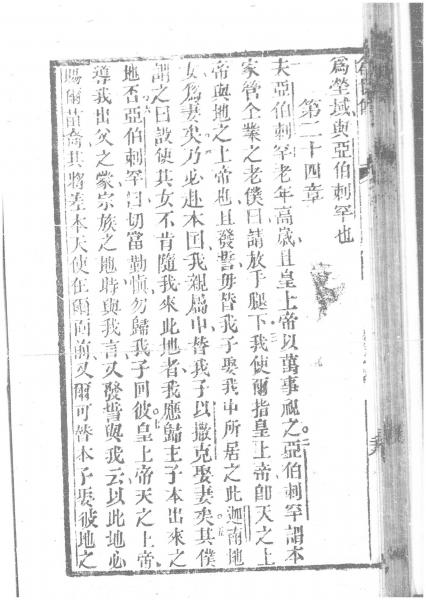 為塋域與亞伯剌罕也
第二十四章
夫亞伯剌罕老年高歲且皇上帝以萬事視之亞伯剌罕謂本
家管全業之老僕曰請放手腿下我使爾指皇上帝即天之上
帝與地之上帝也且發誓毋替我子娶我中所居之此迦南地
女為妻矣乃必赴本囯我親屬中替我子以撒克娶妻矣其僕
謂之曰設使其女不肯隨我來此地者我應歸主子本出來之
地否亞伯剌罕曰切當勤慎勿歸我子回彼皇上帝天之上帝
導我出父之家宗族之地時與我言又發誓與我云以此地必
賜爾苗裔其將差本天使在爾面前又爾可替本子娶彼地之